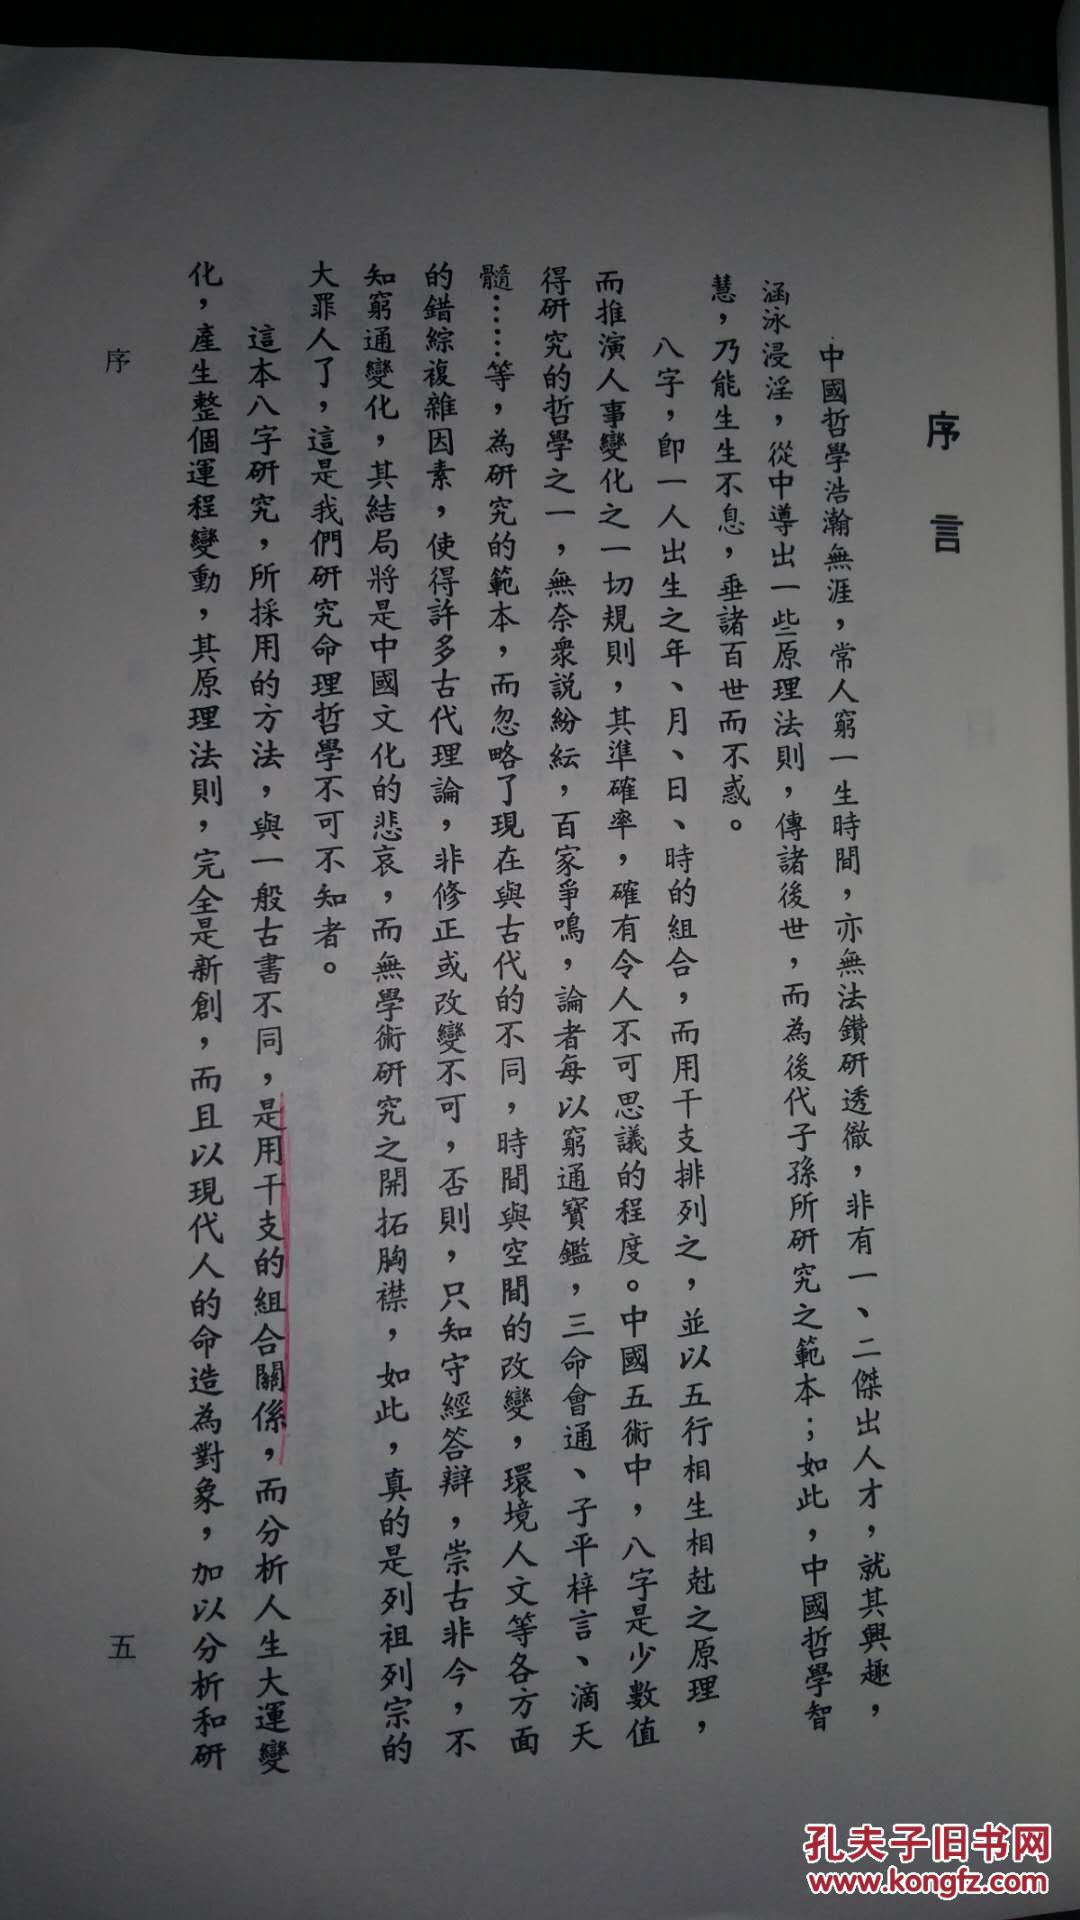 序言
中國哲學浩瀚無涯，常人窮一生時間，亦無法鑽研透徹，非有一、二傑出人才，就其興趣，
涵泳浸淫，從中導出一些原理法則，傳諸後世，而為後代子孫所研究之範本；如此，中國哲學智
慧，乃能生生不息，垂諸百世而不惑。
八字，即一人出生之年、月、日、時的組合，而用干支排列之，並以五行相生相尅之原理，
而推演人事變化之一切規則，其準確率，確有令人不可思議的程度。中國五術中，八字是少數值
得研究的哲學之一，無奈衆説紛紜，百家爭鳴，論者每以窮通寶鑑，三命會通、子平梓言、滴天
髓……等，為研究的範本，而忽略了現在與古代的不同，時間與空間的改變，環境人文等各方面
的錯綜複雜因素，使得許多古代理論，非修正或改變不可，否則，只知守經答辯，崇古非今，不
知窮通變化，其結局將是中國文化的悲哀，而無學術研究之開拓胸襟，如此，真的是列祖列宗的
大罪人了，這是我們研究命理哲學不可不知者。
這本八字研究，所採用的方法，與一般古書不同，是用干支的組合關係，而分析人生大運變
化，產生整個運程變動，其原理法則，完全是新創，而且以現代人的命造為對象，加以分析和研
序
五
孔夫子旧书网
www.kongfz.com